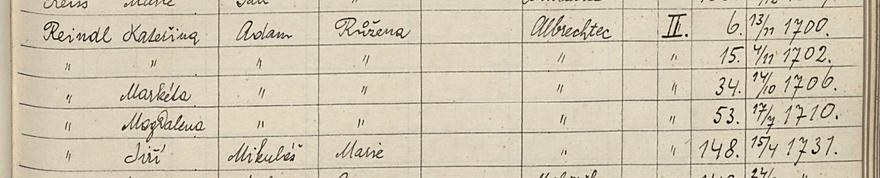 Marie
Reindl Kateřina Adam Růžena Albrechtec II. 6. 13/11 1700.
" " " " " " 15. 4/11 1702.
" Markéta " " " " 34. 14/10 1706.
" Magdalena " " " " 53. 17/7 1710.
" Jiří Mikuláš Marie " " 148. 15/4 1731.